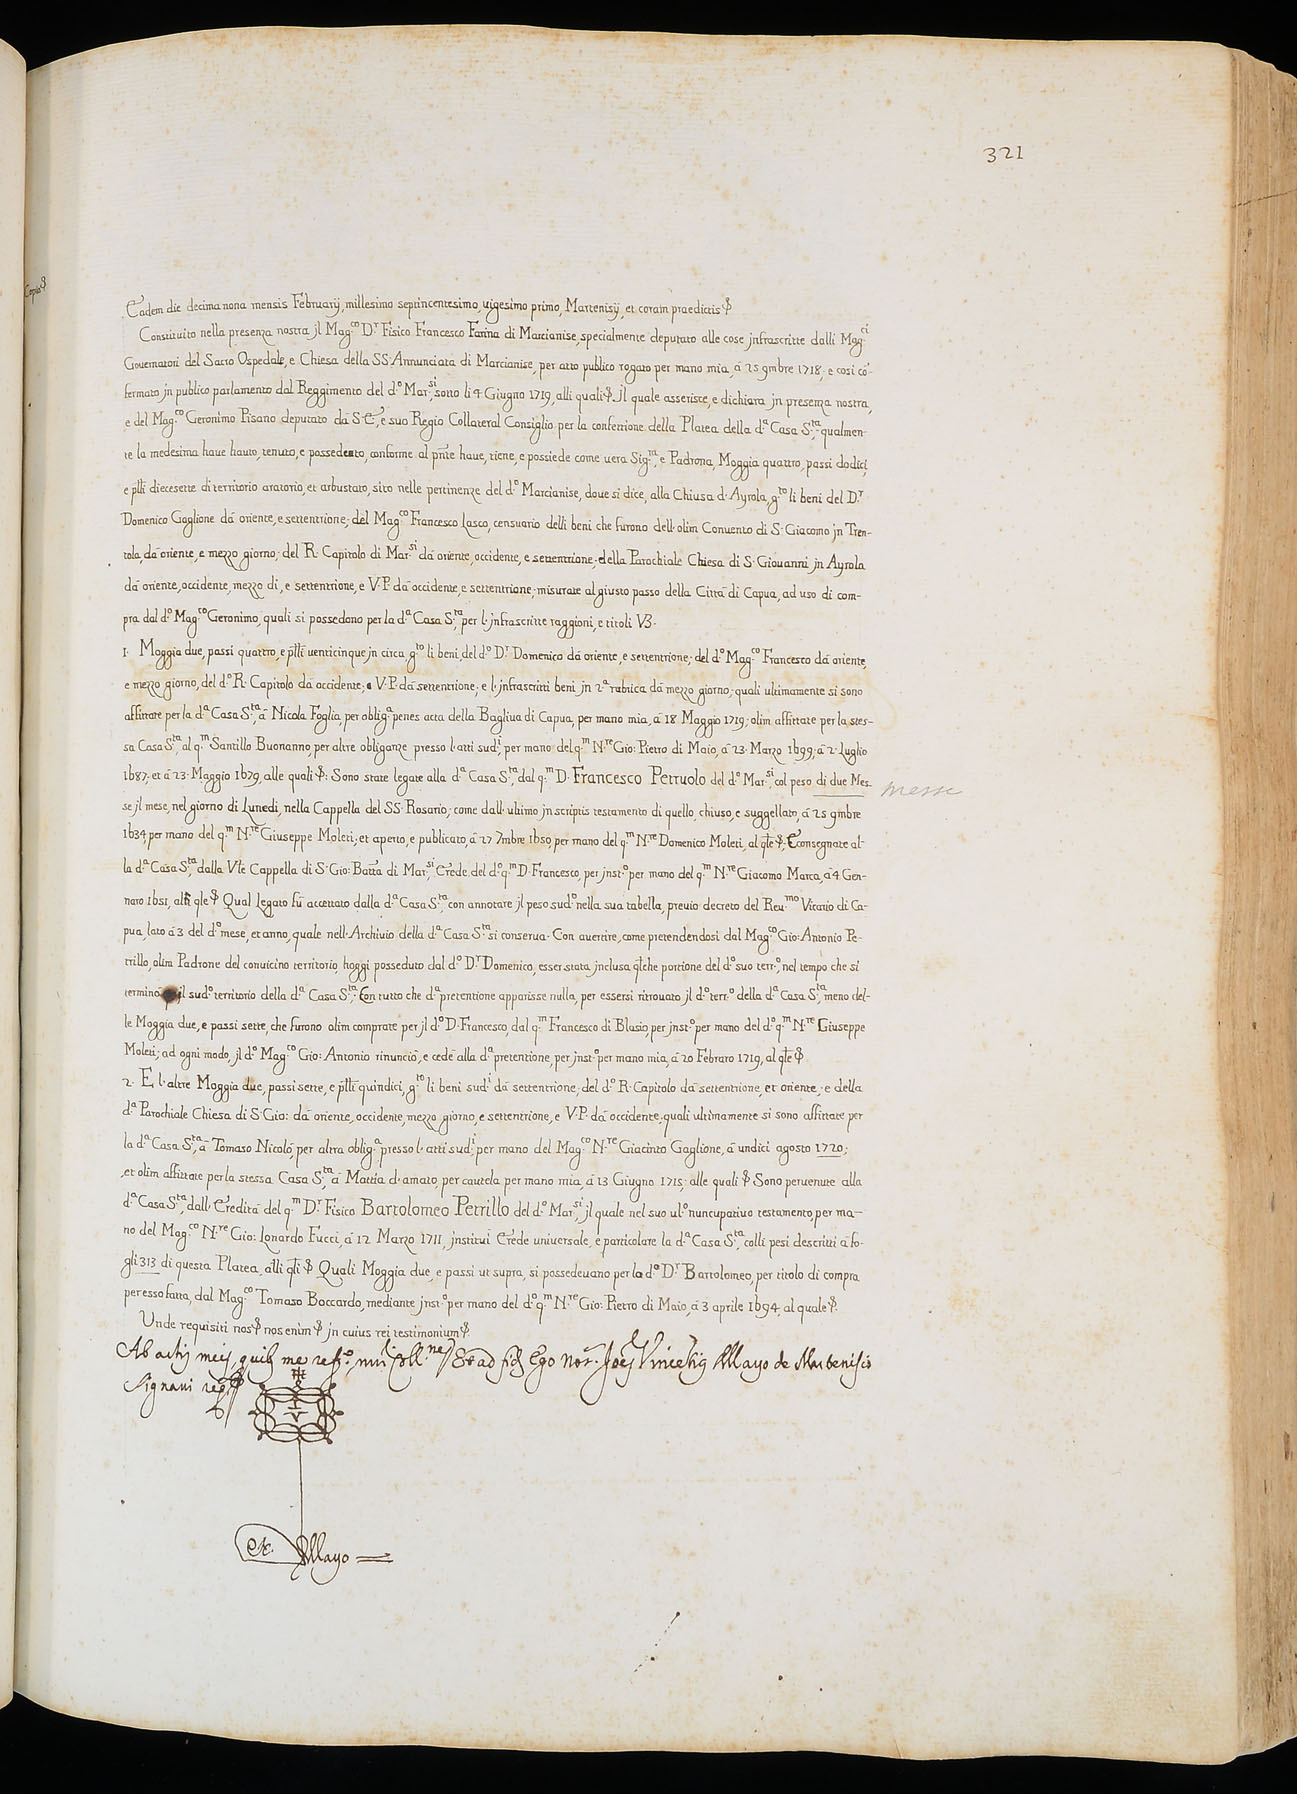 321
Copia
Eadem die decima nona mensis Februarij, millesimo septincentesimo, uigesimo primo, Martenisij, et coram praedictis
Constituito nella presenza nostra jl Mag.co D.r Fisico Francesco Farina di Marcianise, specialmente deputato alle cose jnfrascritte dalli Mag.ci
Gouernatori del Sacro Ospedale, e Chiesa della SS. Annunciata di Marcianise, per atto publico rogato per mano mia, à 25 9mbre 1718, e così cõ-
fermato jn publico parlamento dal Reggimento del d.o Mar.si, sotto li 4 Giugno 1719, alli quali. Jl quale asserisce, e dichiara jn presenza nostra,
e del Mag.co Geronimo Pisano deputato da S. E., e suo Regio Collateral Consiglio per la confettione della Platea della d.a Casa S.ta, qualmen-
te la medesima haue hauto, tenuto, e posseduto, conforme al pnte haue, tiene, e possiede come uera Sig.ra, e Padrona, Moggia quattro, passi dodici,
e plli diecesette di territorio aratorio, et arbustato, sito nelle pertinenze del d.o Marcianise, doue si dice, alla Chiusa d'Ayrola, g.to li beni del D.r
Domenico Gaglione dà oriente, e settentrione; del Mag.co Francesco Lasco, censuario delli beni che furono dell'olim Conuento di S. Giacomo jn Tren-
tola, dà oriente, e mezzo giorno; del R. Capitolo di Mar.si dà oriente, occidente, e settentrione; della Parochiale Chiesa di S. Giouanni jn Ayrola
dà oriente, occidente, mezzo dì, e settentrione, e V.P. dà occidente, e settentrione; misurate al giusto passo della Città di Capua, ad uso di com-
pra dal d.o Mag.co Geronimo, quali si possedono per la d.a Casa S.ta, per l'jnfrascritte raggioni, e titoli V3.
1. Moggia due, passi quattro, e plli uenticinque, jn circa, g.to li beni, del d.o D.r Domenico dà oriente, e settentrione; del d.o Mag.co Francesco dà oriente,
e mezzo giorno, del d.o R. Capitolo dà occidente; e V.P. dà settentrione; e l'jnfrascritti beni jn 2.a rubrica dà mezzo giorno; quali ultimamente si sono
affittate per la d.a Casa S.ta, à Nicola Foglia, per oblig.a penes acta della Bagliua di Capua, per mano mia, à 18 Maggio 1719; olim affittate per la stes-
sa Casa S.ta, al q.m Santillo Buonanno, per altre obliganze presso l'atti sud.i, per mano del q.m N.re Gio: Pietro di Maio, à 23. Marzo 1699; à 2. Luglio
1687; et à 23. Maggio 1679, alle quali: Sono state legate alla d.a Casa S.ta, dal q.m D. Francesco Petruolo del d.o Mar.si, col peso di due Mes-
messe
se jl mese, nel giorno di Lunedì, nella Cappella del SS. Rosario; come dall'ultimo jn scriptis testamento di quello, chiuso, e suggellato, à 25 9mbre
1634 per mano del q.m N.re Giuseppe Moleti; et aperto, e publicato, à 27 7mbre 1650, per mano del q.m N.re Domenico Moleti, al qle; E consegnate al-
la d.a Casa S.ta, dalla Vle Cappella di S. Gio: Batta di Mar.si, Erede del d.o q.m D. Francesco, per jnst.o per mano del q.m N.re Giacomo Marca, à 4 Gen-
naro 1651, alli qle. Qual Legato fù accettato dalla d.a Casa S.ta, con annotare jl peso sud.o nella sua tabella, preuio decreto del Reu.mo Vicario di Ca-
pua, lato à 3 del d.o mese, et anno, quale nell'Archiuio della d.a Casa S.ta si conserua. Con auertire, come pretendendosi dal Mag.co Gio: Antonio Pe-
trillo, olim Padrone del conuicino territorio, hoggi posseduto dal d.o D.r Domenico, esser stata jnclusa qlche portione del d.o suo terr.o, nel tempo che si
terminò jl sud.o territorio della d.a Casa S.ta: Con tutto che d.a pretentione apparisse nulla, per essersi ritrouato jl d.o terr.o della d.a Casa S.ta, meno del-
le Moggia due, e passi sette, che furono olim comprate per jl d.o D. Francesco, dal q.m Francesco di Blasio, per jnst.o per mano del d.o q.m N.re Giuseppe
Moleti; ad ogni modo, jl d.o Mag.co Gio: Antonio rinunciò, e cedè alla d.a pretentione, per jnst.o per mano mia, à 20 Febraro 1719, al qle.
2. E l'altre Moggia due, passi sette, e plli quindici, g.to li beni sud.i dà settentrione; del d.o R. Capitolo dà settentrione, et oriente; e della
d.a Parochiale Chiesa di S. Gio: dà oriente, occidente, mezzo giorno, e settentrione, e V.P. dà occidente; quali ultimamente si sono affittate per
la d.a Casa S.ta, à Tomaso Nicolò, per altra oblig.a presso l'atti sud.i, per mano del Mag.co N.re Giacinto Gaglione, à undici agosto 1720;
et olim affittate per la stessa Casa S.ta, à Mattia d'amato, per cautela per mano mia, à 13 Giugno 1715; alle quali. Sono peruenute alla
d.a Casa S.ta, dall'Eredità del q.m D.r Fisico Bartolomeo Petrillo del d.o Mar.si, jl quale nel suo ul.o nuncupatiuo testamento, per ma-
no del Mag.co N.re Gio: Lonardo Fucci, à 12 Marzo 1711, jnstituì Erede uniuersale, e particolare la d.a Casa S.ta, colli pesi descritti à fo-
gli 313 di questa Platea, alli qli. Quali Moggia due, e passi ut supra, si possedeuano per lo d.o D.r Bartolomeo, per titolo di compra
per esso fatta, dal Mag.co Tomaso Boccardo, mediante jnst.o per mano del d.o q.m N.re Gio: Pietro di Maio, à 3 aprile 1694, al quale.
Unde requisiti nos nos enim jn cuius rei testimonium.
Ab actis meis, quib me ref.o, mel coll.ne, Et ad fid Ego Not. Joes Vincetiq Mayo de Martenisio
signaui reqs
Mayo